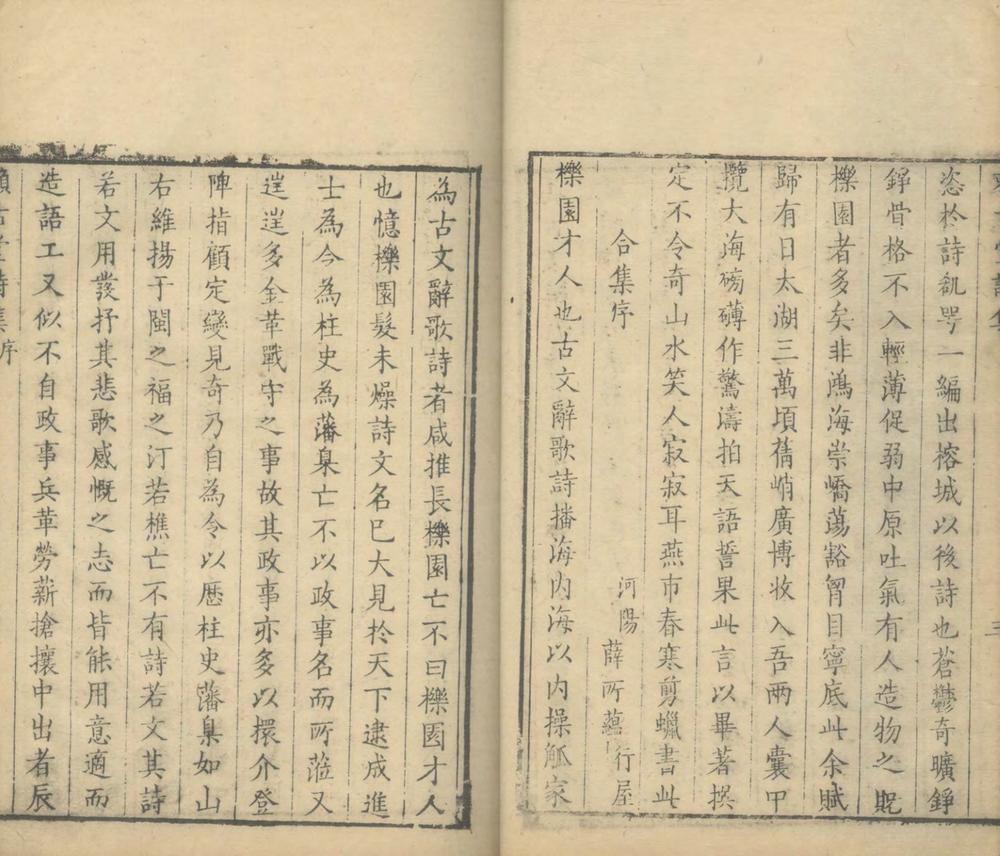 恣於詩瓻咢一編出榕城以後詩也蒼鬱奇曠錚
錚骨格不入輕薄促弱中原吐氣有人造物之貺
櫟園者多矣非鴻海崇嶠蕩豁胷目寧底此余賦
歸有日太湖三萬頃舊峭廣博收入吾兩人囊甲
攬大海磅礴作驚濤拍天語誓果此言以畢著撰
定不令奇山水笑人寂寂耳燕市春寒剪蠟書此
河陽薛所蘊行屋
合集序
櫟園才人也古文辭歌詩播海內海以內操觚家
為古文辭歌詩者咸推長櫟園亡不曰櫟園才人
也憶櫟園髮未燥詩文名已大見於天下逮成進
士為今為柱史為藩臬亡不以政事名而所蒞又
逞逞多金革戰守之事故其政事亦多以擐介登
陴指顧定變見奇乃自為令以歷柱史藩臬如山
右維揚于閩之福之汀若樵亡不有詩若文其詩
若文用發抒其悲歌感慨之志而皆能用意適而
造語工又似不自政事兵革勞薪搶攘中出者辰
賴古堂詩集序